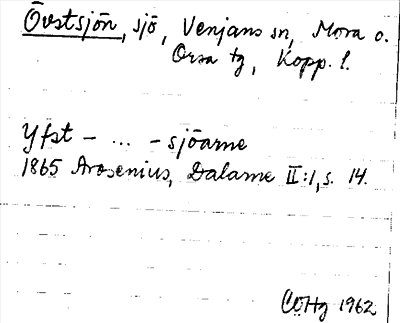 Övstsjön, sjö, Venjans sn, Mora o.
Orsa tg, Kopp. l.
Yfst - ... - sjöarne
1865 Arosenius, Dalarne II:1, s. 14.
CÖHg 1962